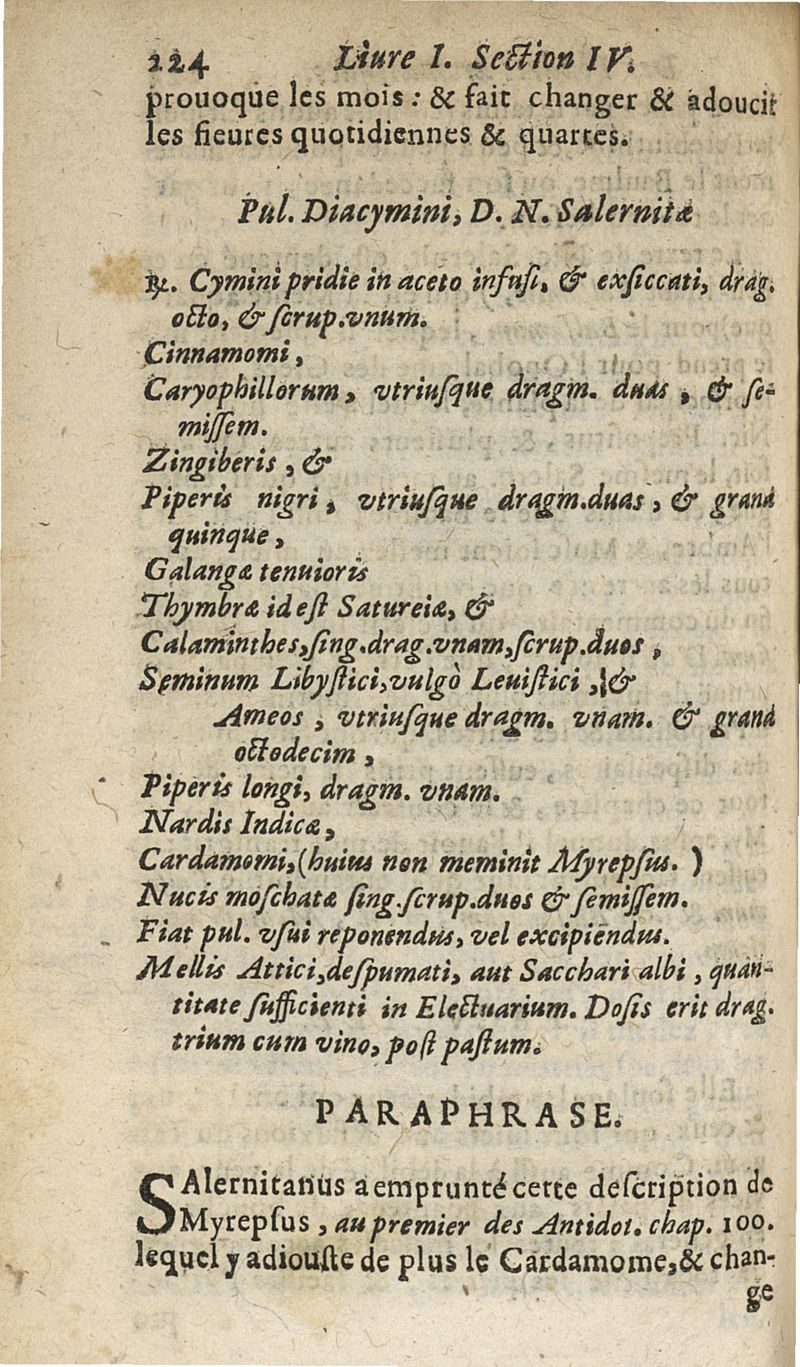 224 Liure I. Section IV.
prouoque les mois : & fait changer & adoucit
les fieures quotidiennes & quartes.
Pul. Diacymini, D. N. Salernitæ
℞. Cymini pridie in aceto infuſi, & exſiccati, drag.
octo, & ſcrup.vnum.
Cinnamomi,
Caryophillorum, vtriuſque dragm. duas, & ſe-
miſſem.
Zingiberis, &
Piperis nigri, vtriuſque dragm.duas, & grana
quinque,
Galangæ tenuioris
Thymbræ id eſt Satureiæ, &
Calaminthes,ſing.drag.vnam,ſcrup.duos,
Seminum Libyſtici,vulgò Leuiſtici, &
Ameos, vtriuſque dragm. vnam. & grana
octodecim,
Piperis longi, dragm. vnam.
Nardis Indicæ,
Cardamomi,(huius non meminit Myrepſus. )
Nucis moſchatæ ſing.ſcrup.duos & ſemiſſem.
Fiat pul. vſui reponendus, vel excipiendus.
Mellis Attici,deſpumati, aut Sacchari albi, quan-
titate ſufficienti in Electuarium. Doſis erit drag.
trium cum vino, poſt paſtum.
PARAPHRASE.
SAlernitanus a emprunté cette deſcription de
Myrepſus, au premier des Antidot. chap. 100.
lequel y adiouſte de plus le Cardamome,& chan-
ge